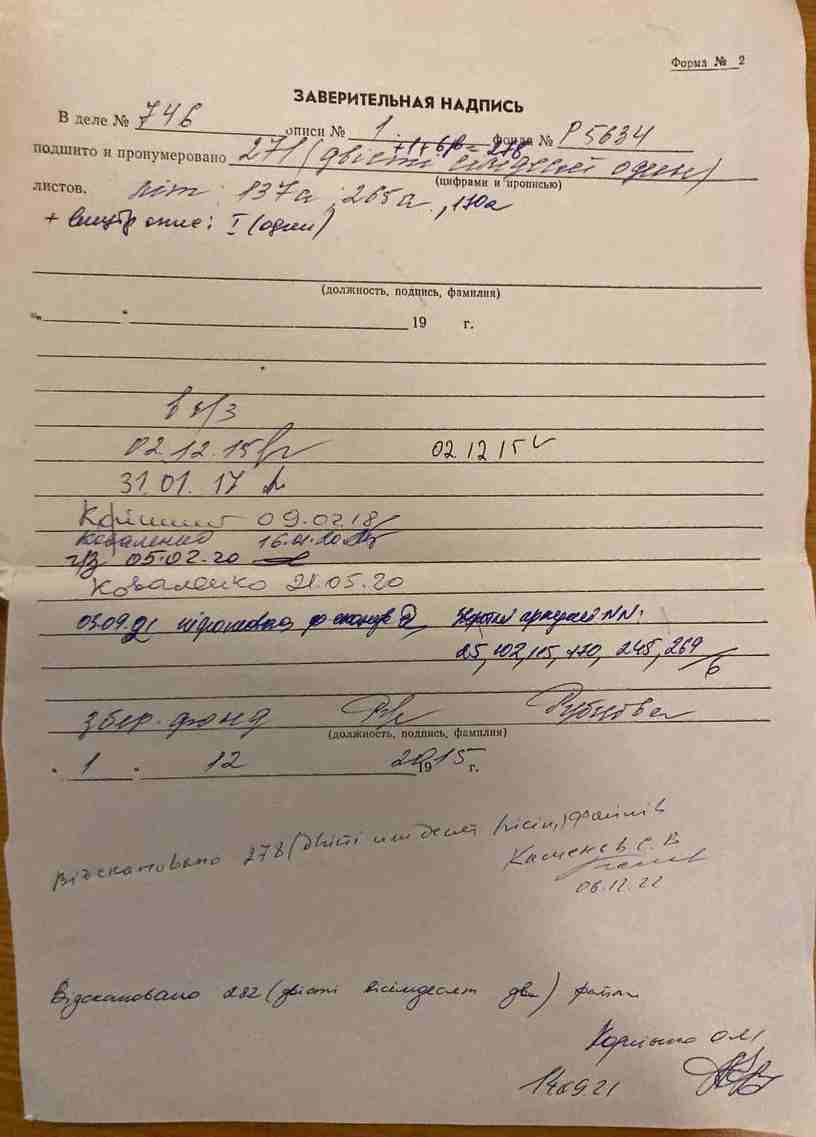 Форма № 2
ЗАВЕРИТЕЛЬНАЯ НАДПИСЬ
В деле № 746 описи № 1 фонда № Р5634
+1+6р = 278
подшито и пронумеровано 271 (двісті сімдесят один)
(цифрами и прописью)
листов. літ. 137а, 265а, 170а
+ внутр опис: I (один)
(должность, подпись, фамилия)
19 г.
02.12.15 02.12.15
31.01.17
09.02.18
Коваленко 16.01.20
05.02.20
Коваленко 21.05.20
03.09.21 підготовлено до сканув аркушей NN:
25, 102, 115, 170, 245, 269 /6
збер. фонд Рубцова
(должность, подпись, фамилия)
1 12 2015 г.
19
Відскановано 278 (двісті сімдесят вісім) файлів
Каменєв Є. В
06.12.22
Відскановано 282 (двісті вісімдесят два) файли
О.М.
14.09.21